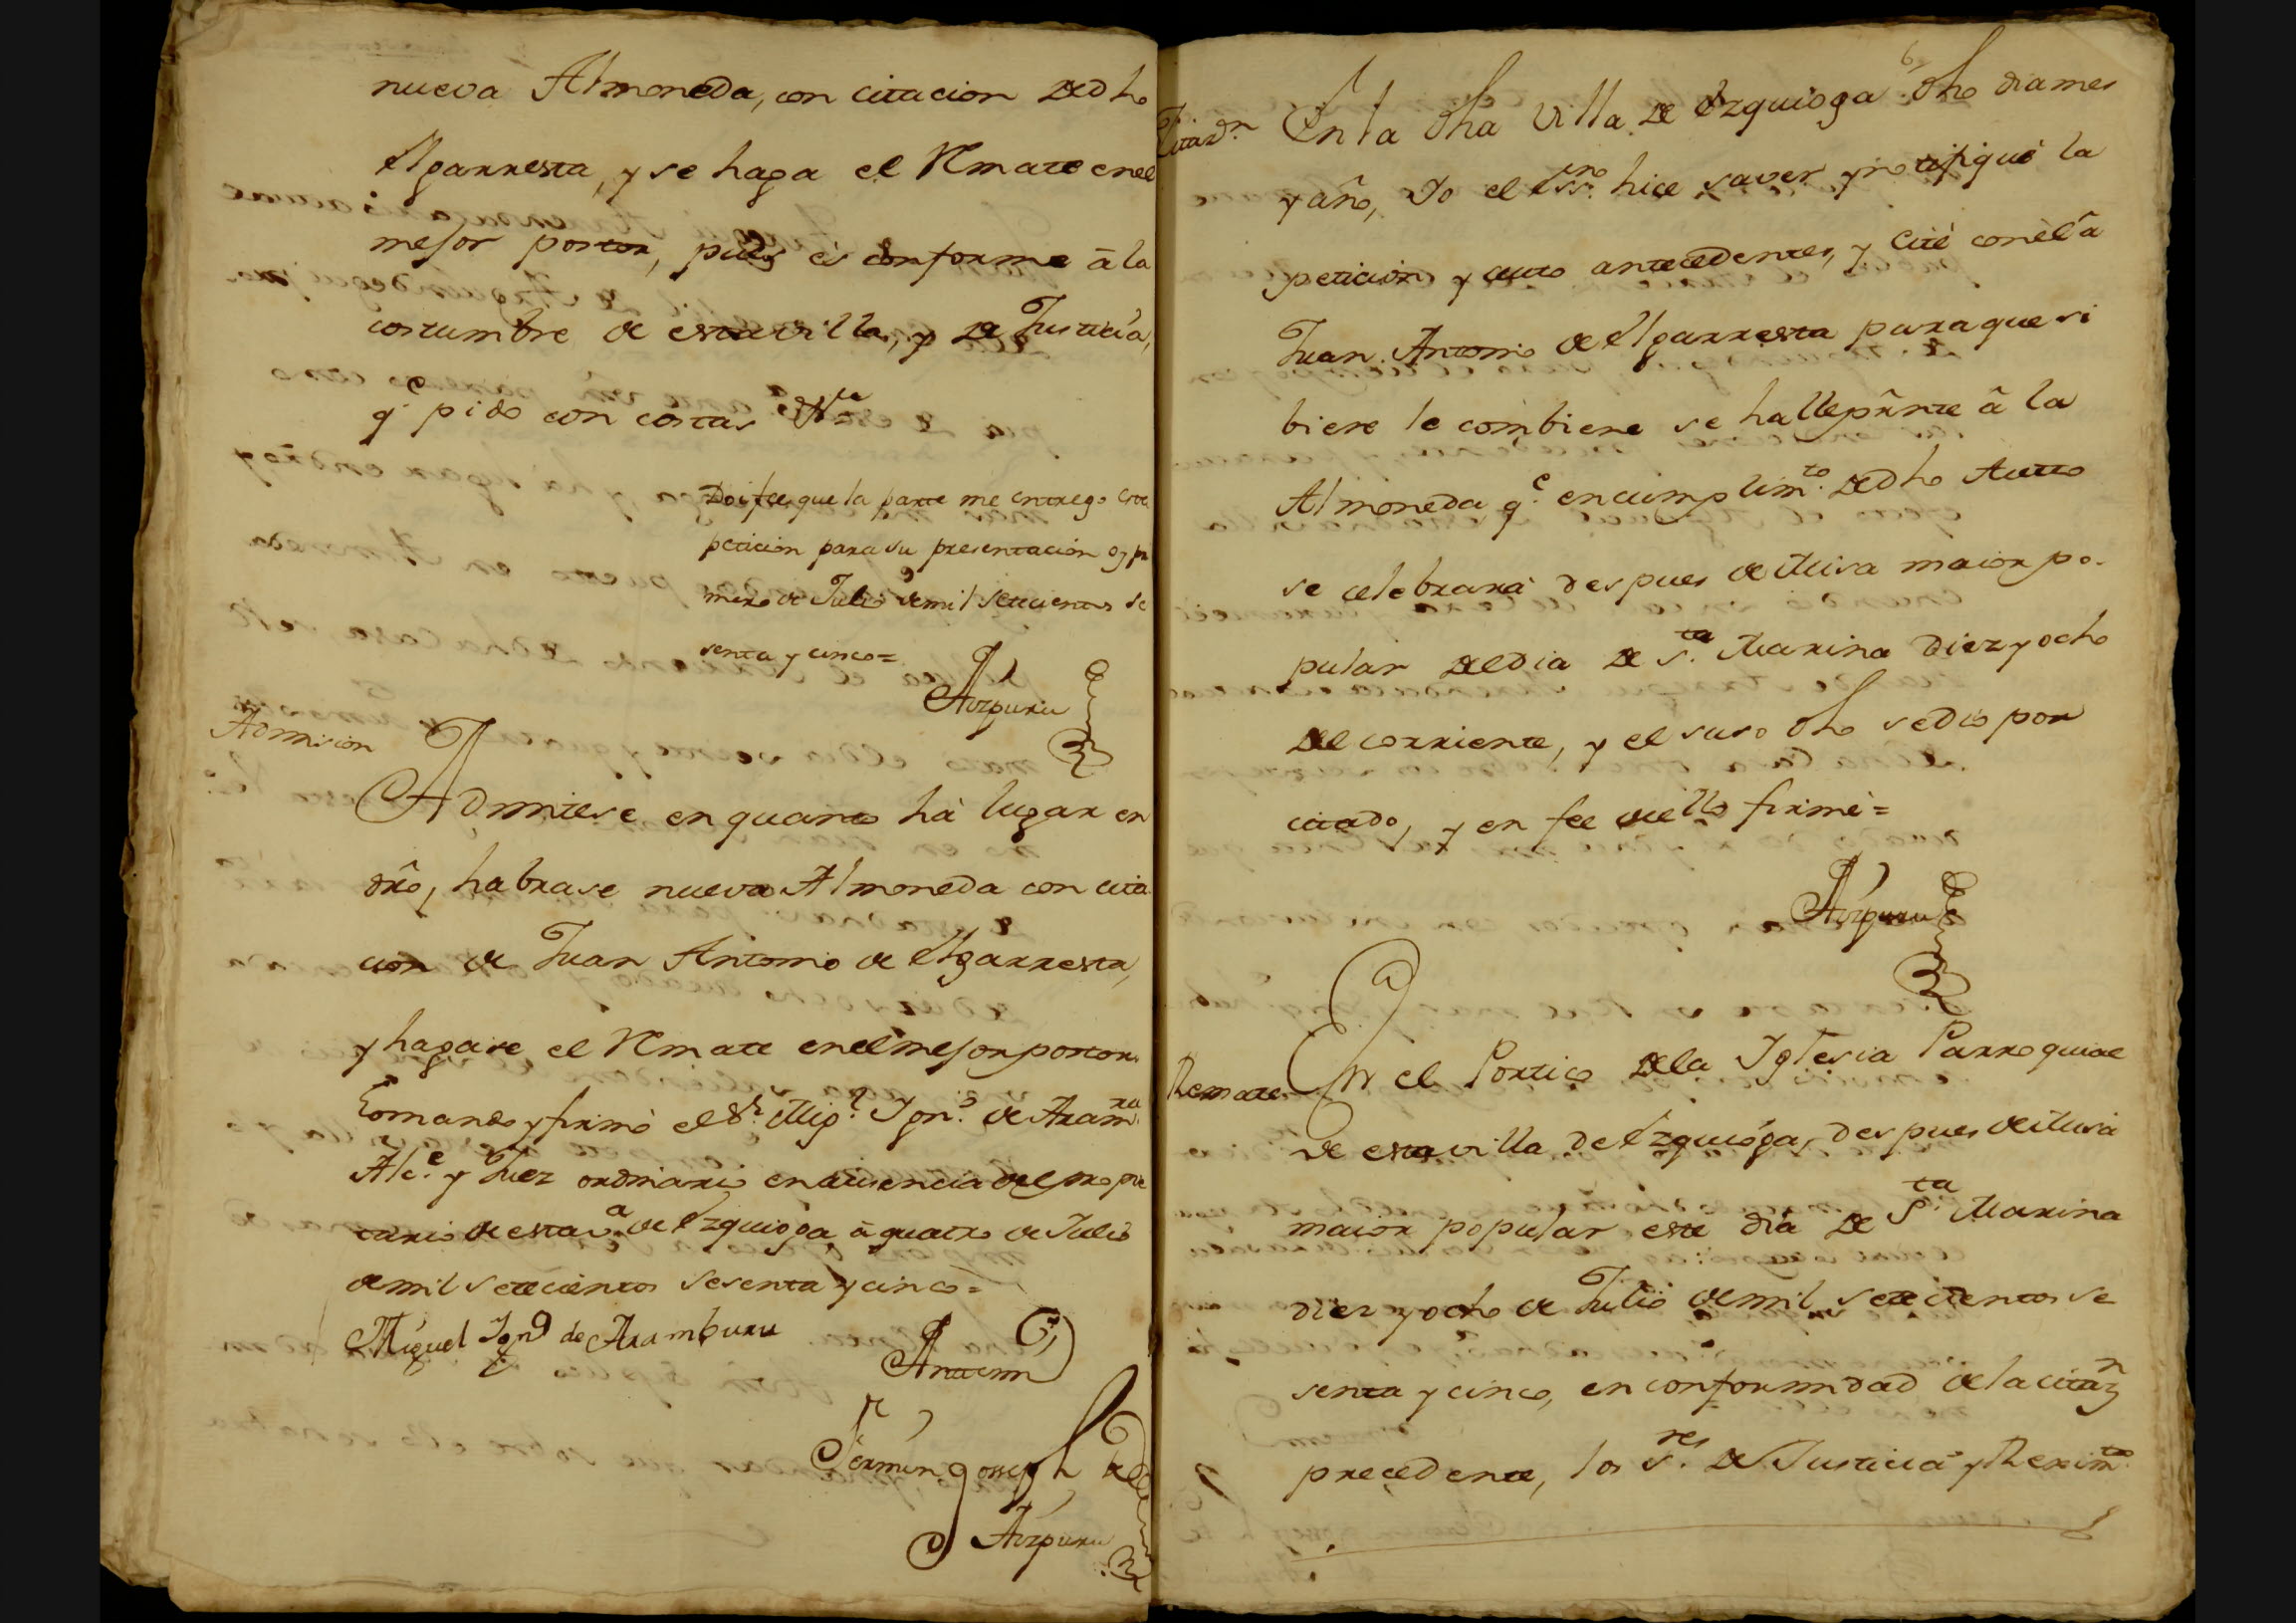 nueva Almoneda, con citacion de dho
Elgarresta, y se haga el Rmate en el
mejor postor, pues es conforme â la
costumbre de esta villa, y de Justicia,
q.e pido con costas &.a
Doi fee que la parte me entregó esta
peticion para su presentacion oy pri
mero de Julio de mil setecientos se
senta y cinco=
Aizpuru
Admision
Admitese en quanto há lugar en
drô, habrase nueva Almoneda con cita
cion de Juan Antonio de Elgarresta,
y hagase el Rmate en el mejor postor.
Lo mando y firmó el S.r Mig.l Ign.o de Aram.ru
Alc.e y Juez ordinario en ausencia del propie
tario de esta v.a de Ezquioga â quatro de Julio
de mil setecientos sesenta y cinco=
Miguel Ign.o de Aramburu
Antemi
Fermin Joseph de
Aizpuru
6
Citaz.n En la dha Villa de Ezquioga dho dia mes
y año, Yo el Ess.no hice saver y notifiqué la
peticion y auto antecedentes, y cité con él â
Juan Antonio de Elgarresta para que si
biere le combiene se halle pŝnte â la
Almoneda q.e en cumplim.to de dho Autto
se celebrará despues de Misa maior po-
pular del dia de S.ta Marina diez y ocho
del corriente, y el suso dho se dió por
citado, y en fee de ello firmé=
Aizpuru
Remate En el Portico de la Iglesia Parroquial
de esta villa de Ezquioga, despues de Misa
maior popular este dia de S.ta Marina
diez y ocho de Julio de mil setecientos se
senta y cinco, en conformidad de la citaz.n
precedente, los S.res de Justicia y Rexim.to